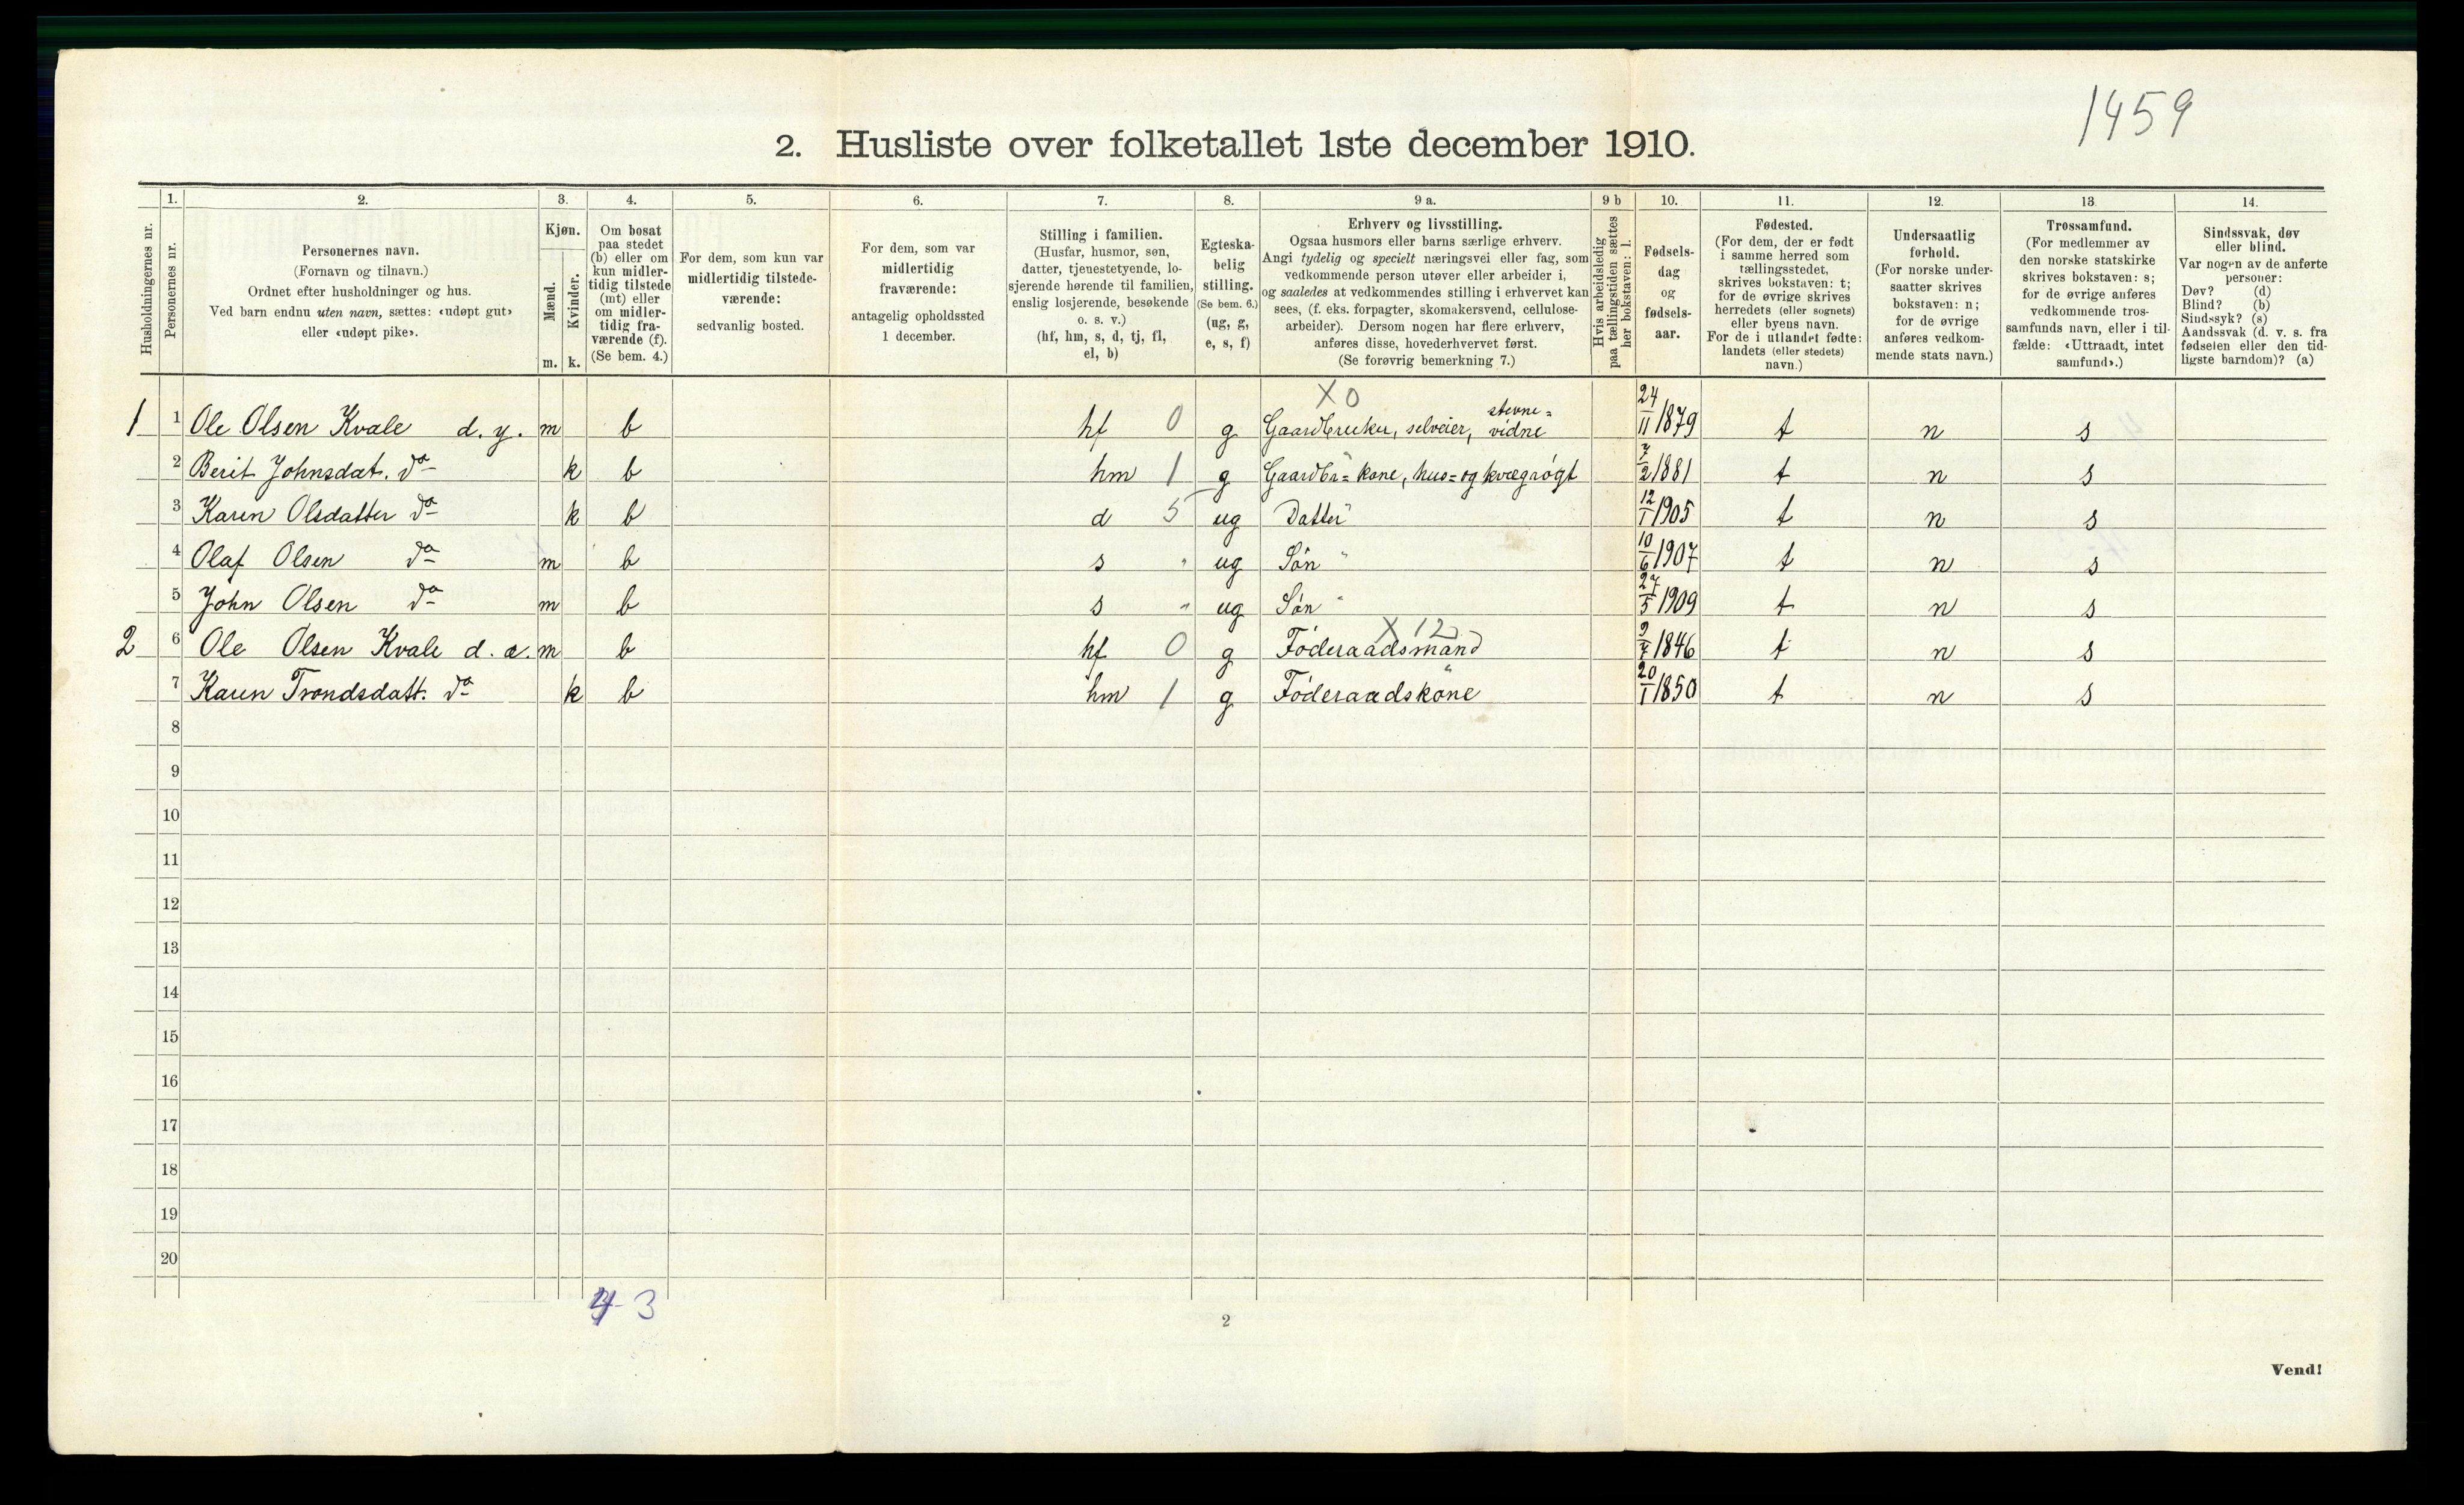 1459
2. Husliste over folketallet 1ste december 1910.
Husholdningernes nr.
1.
Personernes nr.
2.
Personernes navn.
(Fornavn og tilnavn.)
Ordnet efter husholdninger og hus.
Ved barn endnu uten navn, sættes: «udøpt gut»
eller «udøpt pike».
3.
Kjøn.
Mænd.
Kvinder.
m. k.
4.
Om bosat
paa stedet
(b) eller om
kun midler-
tidig tilstede
(mt) eller
om midler-
tidig fra-
værende (f).
(Se bem. 4.)
5.
For dem, som kun var
midlertidig tilstede-
værende:
sedvanlig bosted.
6.
For dem, som var
midlertidig
fraværende:
antagelig opholdssted
1 december.
7.
Stilling i familien.
(Husfar, husmor, søn,
datter, tjenestetyende, lo-
sjerende hørende til familien,
enslig losjerende, besøkende
o. s. v.)
(hf, hm, s, d, tj, fl,
el, b)
8.
Egteska-
belig
stilling.
(Se bem. 6.)
(ug, g,
e, s, f)
9 a.
Erhverv og livsstilling.
Ogsaa husmors eller barns særlige erhverv.
Angi tydelig og specielt næringsvei eller fag, som
vedkommende person utøver eller arbeider i,
og saaledes at vedkommendes stilling i erhvervet kan
sees, (f. eks. forpagter, skomakersvend, cellulose-
arbeider). Dersom nogen har flere erhverv,
anføres disse, hovederhvervet først.
(Se forøvrig bemerkning 7.)
9 b
Hvis arbeidsledig
paa tællingstiden sættes
her bokstaven: l.
10.
Fødsels-
dag
og
fødsels-
aar.
11.
Fødested.
(For dem, der er født
i samme herred som
tællingsstedet,
skrives bokstaven: t;
for de øvrige skrives
herredets (eller sognets)
eller byens navn.
For de i utlandet fødte:
landets (eller stedets)
navn.)
12.
Undersaatlig
forhold.
(For norske under-
saatter skrives
bokstaven: n;
for de øvrige
anføres vedkom-
mende stats navn.)
13.
Trossamfund.
(For medlemmer av
den norske statskirke
skrives bokstaven: s;
for de øvrige anføres
vedkommende tros-
samfunds navn, eller i til-
fælde: «Uttraadt, intet
samfund».)
14.
Sindssvak, døv
eller blind.
Var nogen av de anførte
personer:
Døv? (d)
Blind? (b)
Sindssyk? (s)
Aandssvak (d. v. s. fra
fødselen eller den tid-
ligste barndom)? (a)
X 0
1 1 Ole Olsen Kvale d. y. m b hf 0 g Gaardbruker, selveier, stevne= vidne 24/11 1879 t n s
2 Berit Johnsdat. do k b hm 1 g Gaardbr= kone, hus= og kvægrøgt 7/2 1881 t n s
3 Karen Olsdatter do k b d 5 ug Datter " 12/1 1905 t n s
4 Olaf Olsen do m b s " ug Søn " 10/6 1907 t n s
5 John Olsen do m b s " ug Søn " 27/5 1909 t n s
X 12
2 6 Ole Olsen Kvale d. æ. m b hf 0 g Føderaadsmand 9/7 1846 t n s
7 Karen Trondsdatt. do k b hm 1 g Føderaadskone 20/1 1850 t n s
8
9
10
11
12
13
14
15
16
17
18
19
20
4 3
2
Vend!